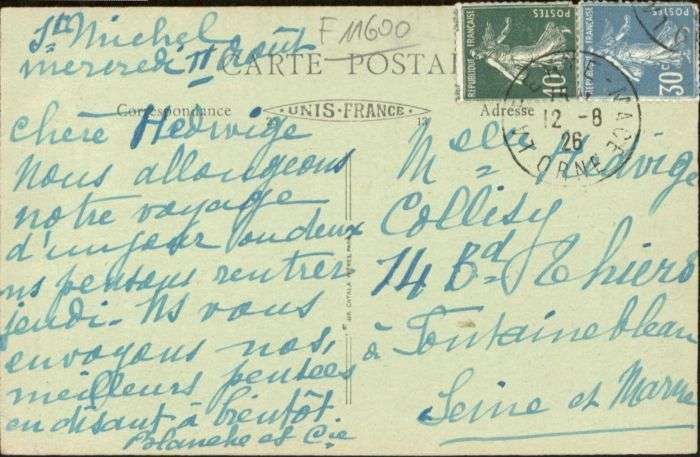 St Michel
mercredi 11 août
F 11600
CARTE POSTAL
Correspondance
UNIS-FRANCE
Adresse
chère Hedwige
Nous allongeons
notre voyage
d'un jour ou deux
ns pensons rentrer
jeudi. Ns vous
envoyons nos
meilleurs pensées
en disant à bientôt
Blanche et Cie
Melle Hedvige
Collisy
14 Bd Thiers
à Fontainebleau
Seine et Marne
REPUBLIQUE FRANÇAISE
POSTES
10
POSTES
30c
MACE
12-8
26
ORNE